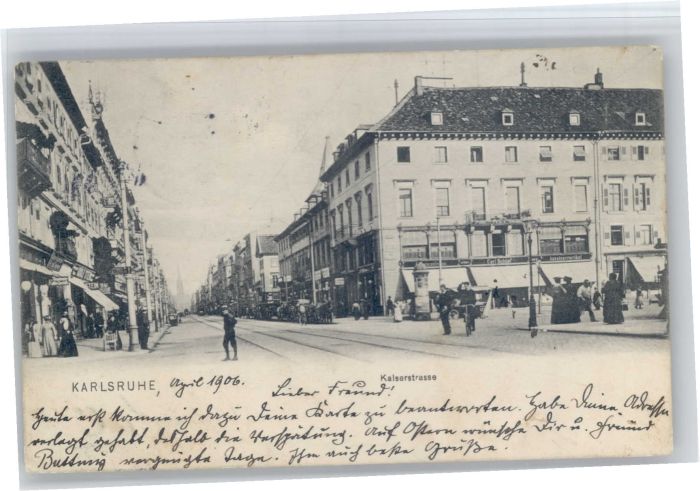 Kaiserstrasse
KARLSRUHE, April 1906. Lieber Freund!
Heute erst komme ich dazu Deine Karte zu beantworten. Habe Deine Adresse
verlegt gehabt, deshalb die Verspätung. Auf Ostern wünsche Dir u. Freund
vergnügte Tage. Ihm auch beste Grüße.